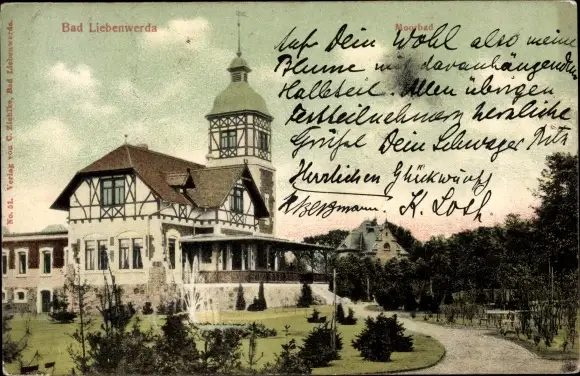 Bad Liebenwerda
Moorbad
No. 51. Verlag von C. Ziehlke, Bad Liebenwerda.
Auf Dein Wohl also meine
Blume mit davanhängendem
Halleteil. Allen übrigen
Festteilnehmern herzliche
Grüße Dein Schwager Fritz
Herzlichen Glückwunsch
K. Losch